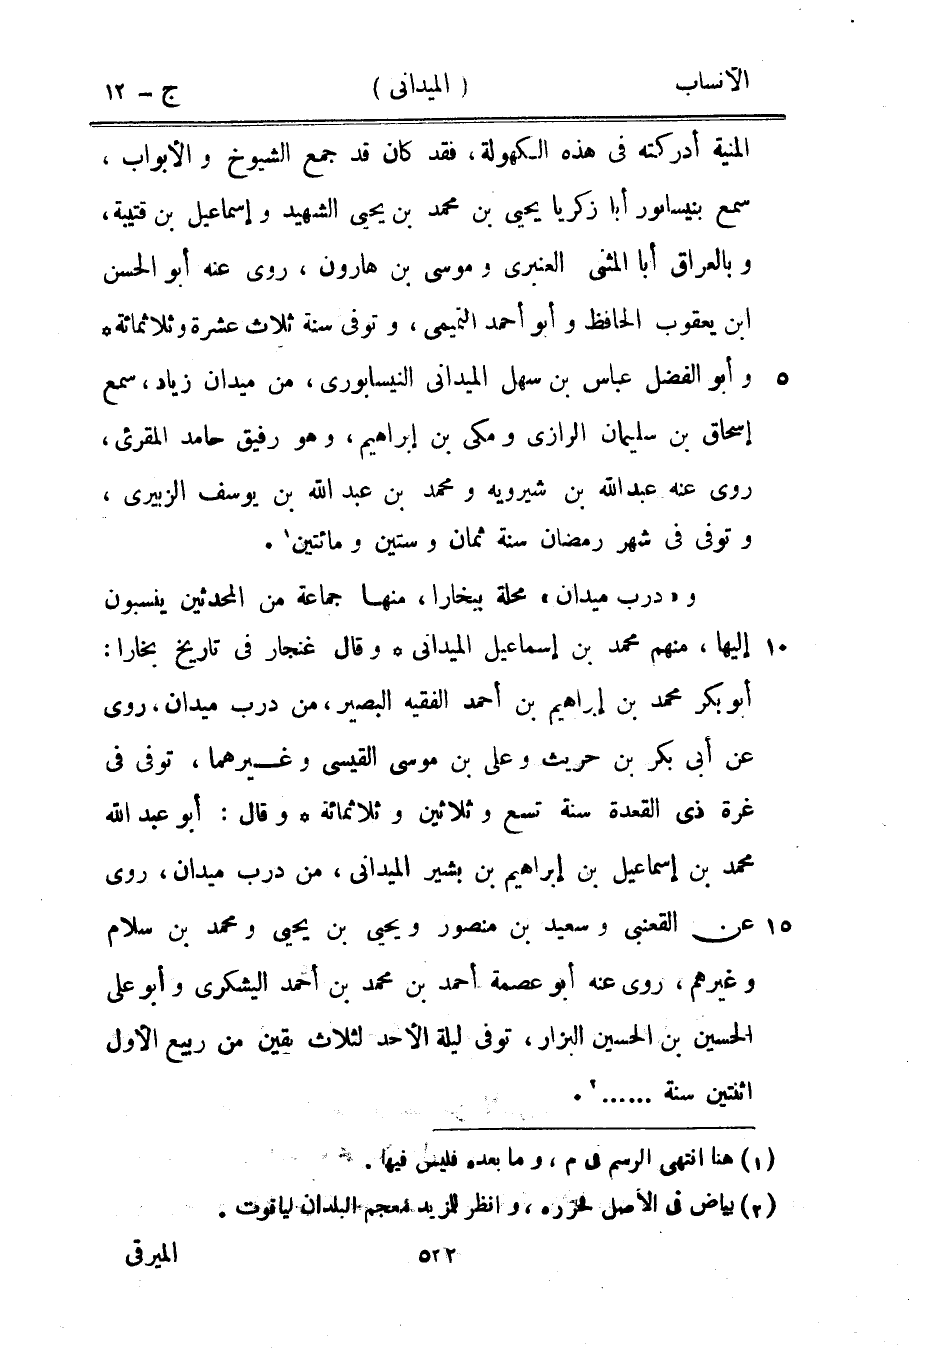 الأنساب ( الميدانى ) ج – ١٢
المنية أدركته فى هذه الكهولة، فقد كان قد جمع الشيوخ و الأبواب ،
سمع بنيسابور أبا زكريا يحيى بن محمد بن يحيى الشهيد و إسماعيل بن قتيبة،
و بالعراق أبا المثنى العنبرى و موسى بن هارون ، روى عنه أبو الحسن
ابن يعقوب الحافظ و أبو أحمد التميمى، و توفى سنة ثلاث عشرة و ثلاثمائة *
٥ و أبو الفضل عباس بن سهل الميدانى النيسابورى، من ميدان زياد، سمع
إسحاق بن سليمان الرازى و مكى بن إبراهيم، و هو رفيق حامد المقرئ،
روى عنه عبدالله بن شيرويه و محمد بن عبد الله بن يوسف الزبيرى ،
و توفى فى شهر رمضان سنة ثمان و ستين و مائتين١ .
و «درب ميدان» محلة ببخارا، منها جماعة من المحدثين ينسبون
١٠ إليها، منهم محمد بن إسماعيل الميدانى * و قال غنجار فى تاريخ بخارا:
أبو بكر محمد بن إبراهيم بن أحمد الفقيه البصير، من درب ميدان، روى
عن أبى بكر بن حريث و على بن موسى القيسى و غيرهما، توفى فى
غرة ذى القعدة سنة تسع و ثلاثين و ثلاثمائة * و قال : أبو عبد الله
محمد بن إسماعيل بن إبراهيم بن بشير الميدانى، من درب ميدان، روى
١٥ عن القعنبى و سعيد بن منصور و يحيى بن يحيى و محمد بن سلام
و غيرهم، روى عنه أبو عصمة أحمد بن محمد بن أحمد اليشكرى و أبو على
الحسين بن الحسين البزار، توفى ليلة الأحد لثلاث بقين من ربيع الأول
اثنتين سنة ......٢ .
(١) هنا انتهى الرسم فى م ، و ما بعده فليس فيها .
(٢) بياض فى الأصل فحرره ، و انظر للمزيد معجم البلدان لياقوت .
٥٢٢ الميرقى